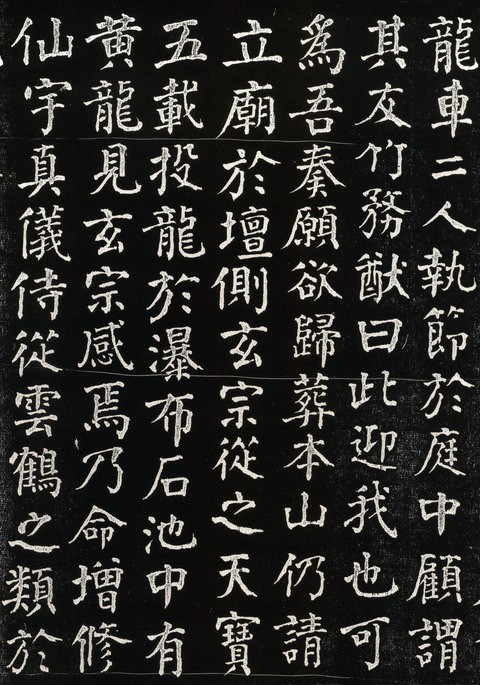 龍車二人執節於庭中顧謂
其友竹務猷曰此迎我也可
為吾奏願欲歸葬本山仍請
立廟於壇側玄宗從之天寶
五載投龍於瀑布石池中有
黃龍見玄宗感焉乃命增修
仙宇真儀侍從雲鶴之類於